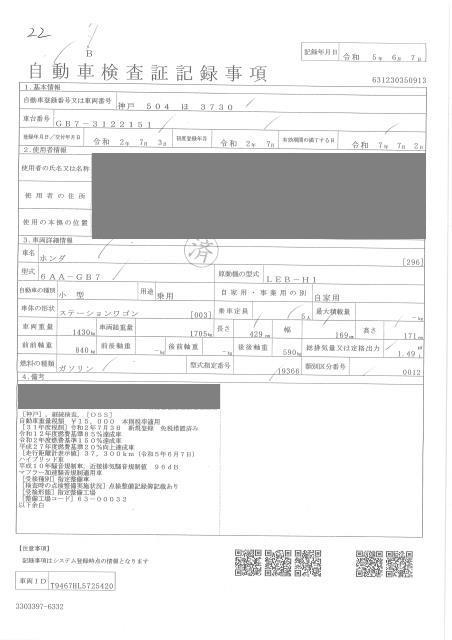 22
B
自動車検査証記録事項
記録年月日 令和 5年 6月 7日
631230350913
1.基本情報
自動車登録番号又は車両番号 神戸 504 ほ 3730
車台番号 GB7-3122151
登録年月日/交付年月日 令和 2年 7月 3日 初度登録年月 令和 2年 7月 有効期間の満了する日 令和 7年 7月 2日
2.使用者情報
使用者の氏名又は名称
使用者の住所
使用の本拠の位置
3.車両詳細情報
済
車名 ホンダ [296]
型式 6AA-GB7 原動機の型式 LEB-H1
自動車の種別 小型 用途 乗用 自家用・事業用の別 自家用
車体の形状 ステーションワゴン [003] 乗車定員 5人 最大積載量 -kg
車両重量 1430kg 車両総重量 1705kg 長さ 429cm 幅 169cm 高さ 171cm
前前軸重 840kg 前後軸重 -kg 後前軸重 -kg 後後軸重 590kg 総排気量又は定格出力 1.49L
燃料の種類 ガソリン 型式指定番号 19366 類別区分番号 0012
4.備考
[神戸],継続検査,[OSS]
自動車重量税額 ¥15,000 本則税率適用
[31年度税制]令和2年7月3日 新規登録 免税措置済み
令和12年度燃費基準85%達成車
令和2年度燃費基準150%達成車
平成27年度燃費基準20%向上達成車
[走行距離計表示値]37,300km(令和5年6月7日)
ハイブリッド車
平成10年騒音規制車,近接排気騒音規制値 96dB
マフラー加速騒音規制適用車
[受検種別]指定整備車
[検査時の点検整備実施状況]点検整備記録簿記載あり
[受検形態]指定整備工場
[整備工場コード]63-00032
以下余白
[注意事項]
記録事項はシステム登録時点の情報となります
車両ID T9467HL5725420
3303397-6332